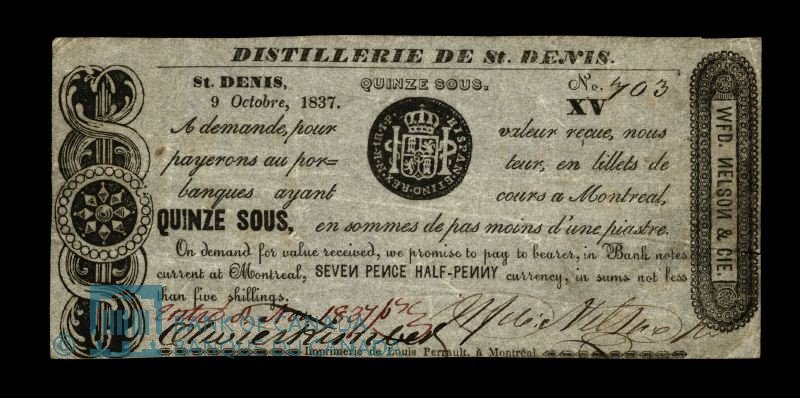 DISTILLERIE DE St. DENIS.
St. DENIS, QUINZE SOUS. No. 703
9 Octobre, 1837. XV
A demande, pour valeur reçue, nous
payerons au por= teur, en billets de
banques ayant cours a Montreal,
QUINZE SOUS, en sommes de pas moins d'une piastre.
On demand for value received, we promise to pay to bearer, in Bank notes
current at Montreal, SEVEN PENCE HALF-PENNY currency, in sums not less
than five shillings.
1837
Imprimerie de Louis Perrault, à Montréal
WFD. NELSON & CIE.
© BANK OF CANADA
BANQUE DU CANADA